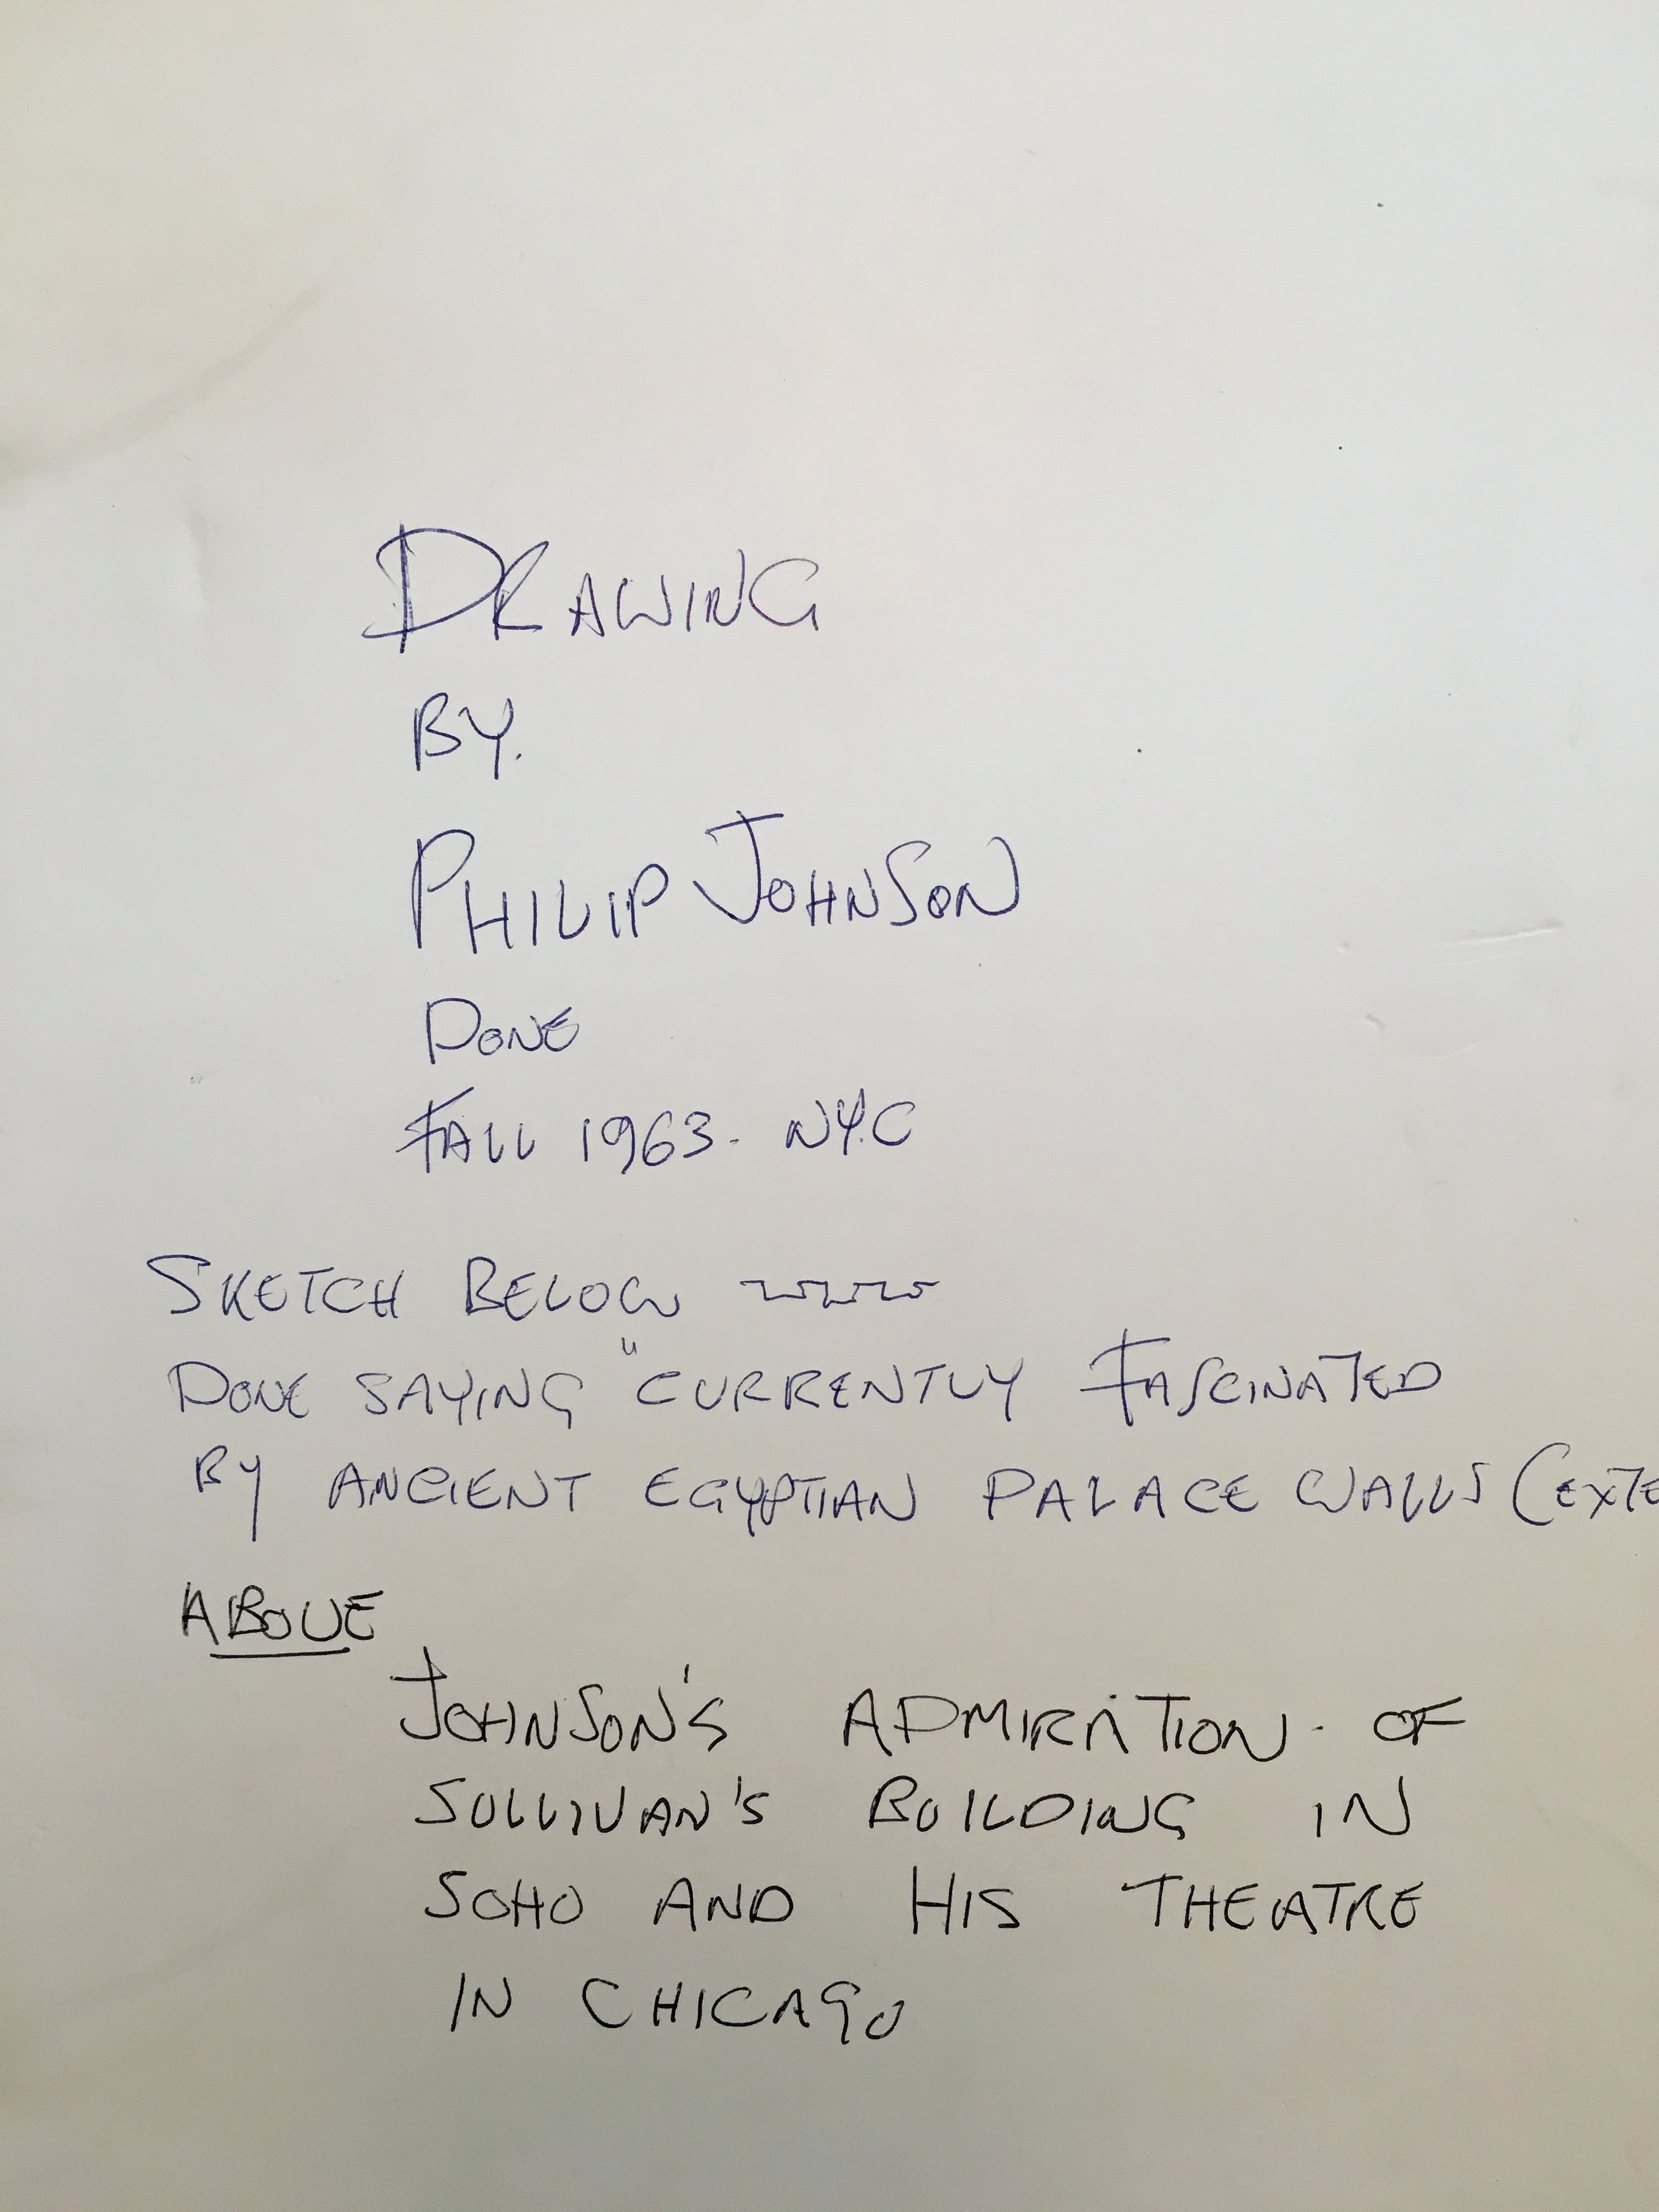 DRAWING
BY.
PHILIP JOHNSON
DONE
FALL 1963. NYC
SKETCH BELOW
DONE SAYING "CURRENTLY FASCINATED
BY ANCIENT EGYPTIAN PALACE WALLS (EXTE
ABOVE
JOHNSON'S ADMIRATION - OF
SULLIVAN'S BUILDING IN
SOHO AND HIS THEATRE
IN CHICAGO